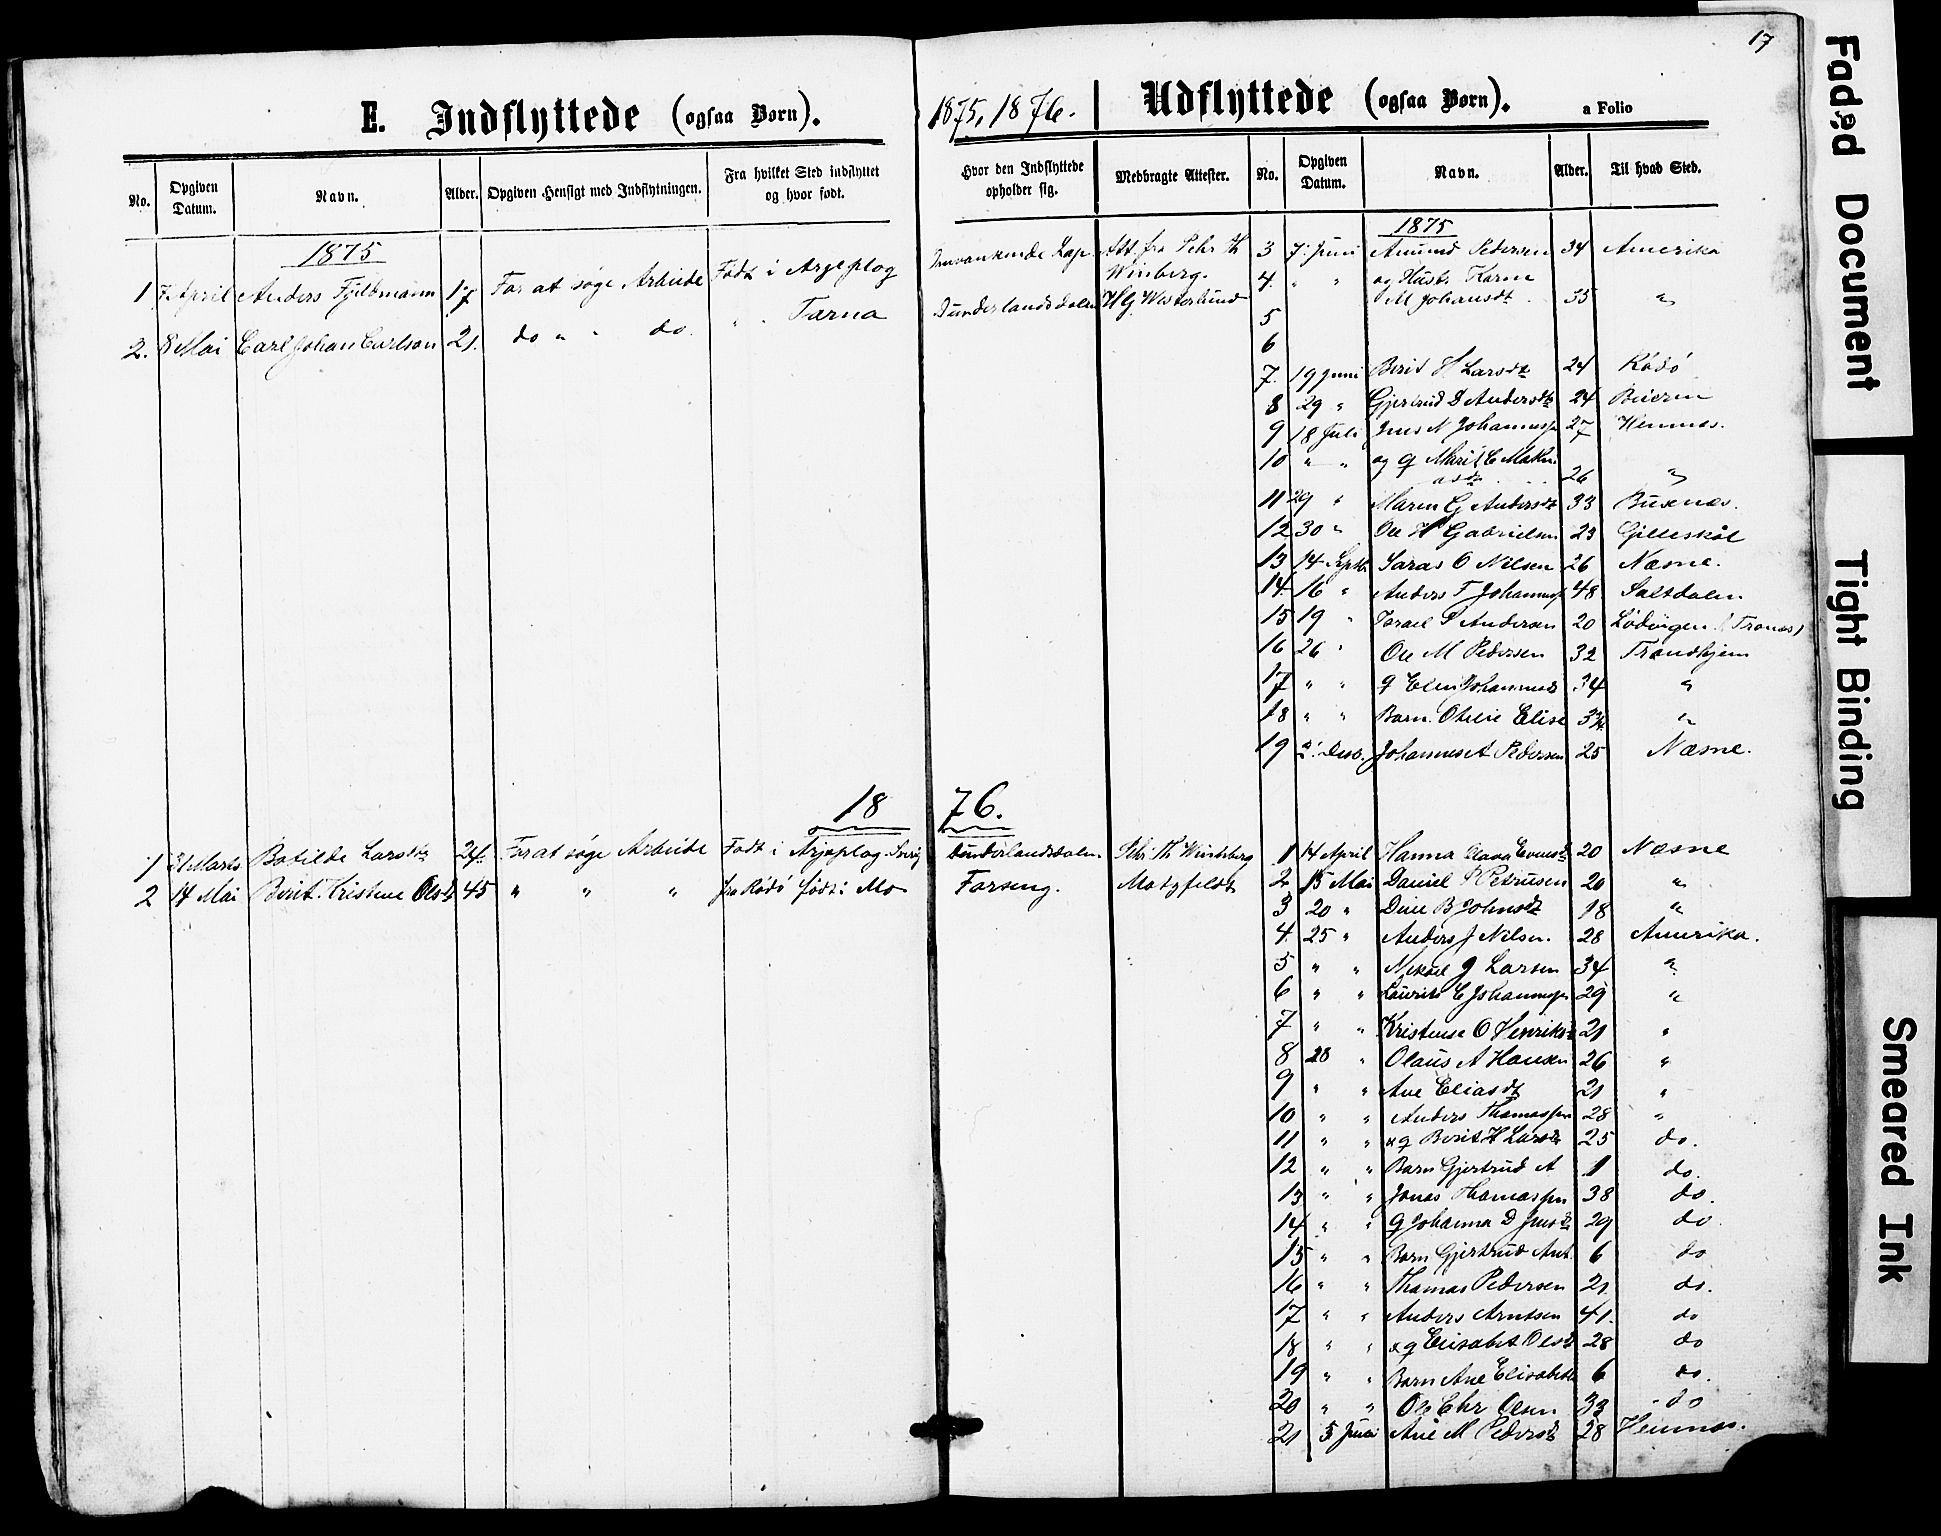 17
E. Indflyttede (ogsaa Børn). 1875, 1876. Udflyttede (ogsaa Børn). a Folio
No. Opgiven Datum. Navn. Alder. Opgiven Hensigt med Indflytningen. Fra hvilket Sted indflyttet og hvor født. Hvor den Indflyttede opholder sig. Medbragte Attester.
1875
1 7 April Anders Fjellmann 17 For at søge Arbeide Født i Arjeplog Omvankende Lap. Att. fra Schr. Th Winsberg.
2. 8 Mai Carl Johan Carlson 21. do " " do. " " Tærna Dunderlandsdalen H G Westerlund
1876.
1 31 Marts Botilde Larsdtr 24. For at søge Arbeide Født i Arjeplog Sverig Dunderlandsdalen. Schr. Th Windsberg
2 14 Mai Berit Kristine Olsdtr 45 " " " fra Rödö født i Mo Forseng. Motzfeldt
No. Opgiven Datum. Navn. Alder. Til hvad Sted.
1875
3 7. Juni Amund Pedersen 34 Amerika
4. " " og Hustr Karen
M Johansdt. 35 "
5
6
7. 19 Juni Berit H Larsdtr 24 Rödö
8 29 " Gjertrud D Andersdtr 24 Beieren
9 18 Juli Jens N Johannesn 27 Hemnes.
10 " " og q Marit C Mathi
asdtr 26 "
11 29 " Maren G Andersdtr 33 Buxnæs.
12 30 " Ole H Gabrielsen 23 Gilleskål
13 14 Septb Saras O Nilsen 26 Næsne.
14. 16 " Anders T Johannesn 48 Saltdalen
15 19 " Israel P Andersen 20 Lödvigen (Tranøs)
16 26 " Ole M Pedersen 32 Trondhjem
17 " " q Elen Johannesd 34 "
18 " " Barn. Otelie Elise 3¾ "
19 2. Decb. Johannes A Pedersen 25 Næsne.
1 14 April Hanna Olava Evensdtr 20 Næsne
2 15 Mai Daniel P Petrusen 20 "
3 20 " Dine B Johnsdtr 18 "
4. 25 " Anders J Nilsen. 28 Amerika.
5 " " Mikael J Larsen 34 "
6 " " Laurits E Johannesn 29 "
7 " " Kristense O Henriksd 21 "
8 28 " Olaus A Hansen 26 "
9 " " Ane Eliasdt 21 "
10 " " Anders Thomassen 28 "
11 " " og q Berit H Larsdtr 25 do.
12 " " Barn Gjertrud A 1 do.
13 " " Jonas Thomassen 38 do.
14 " " q Johanna D Jensdtr 29 do.
15 " " Barn Gjertrud Ant. 6 do
16 " " Thomas Pedersen 21 do.
17 " " Anders Arntsen 41. do
18 " " og q Elisabet Olsdt 28 do
19 " " Barn Ane Elisabeth 6 do.
20 " " Ole Chr Olsen 33 do
21 5 Juni Ane M Pedersdtr 28 Hemnæs.
Faded Document
Tight Binding
Smeared Ink